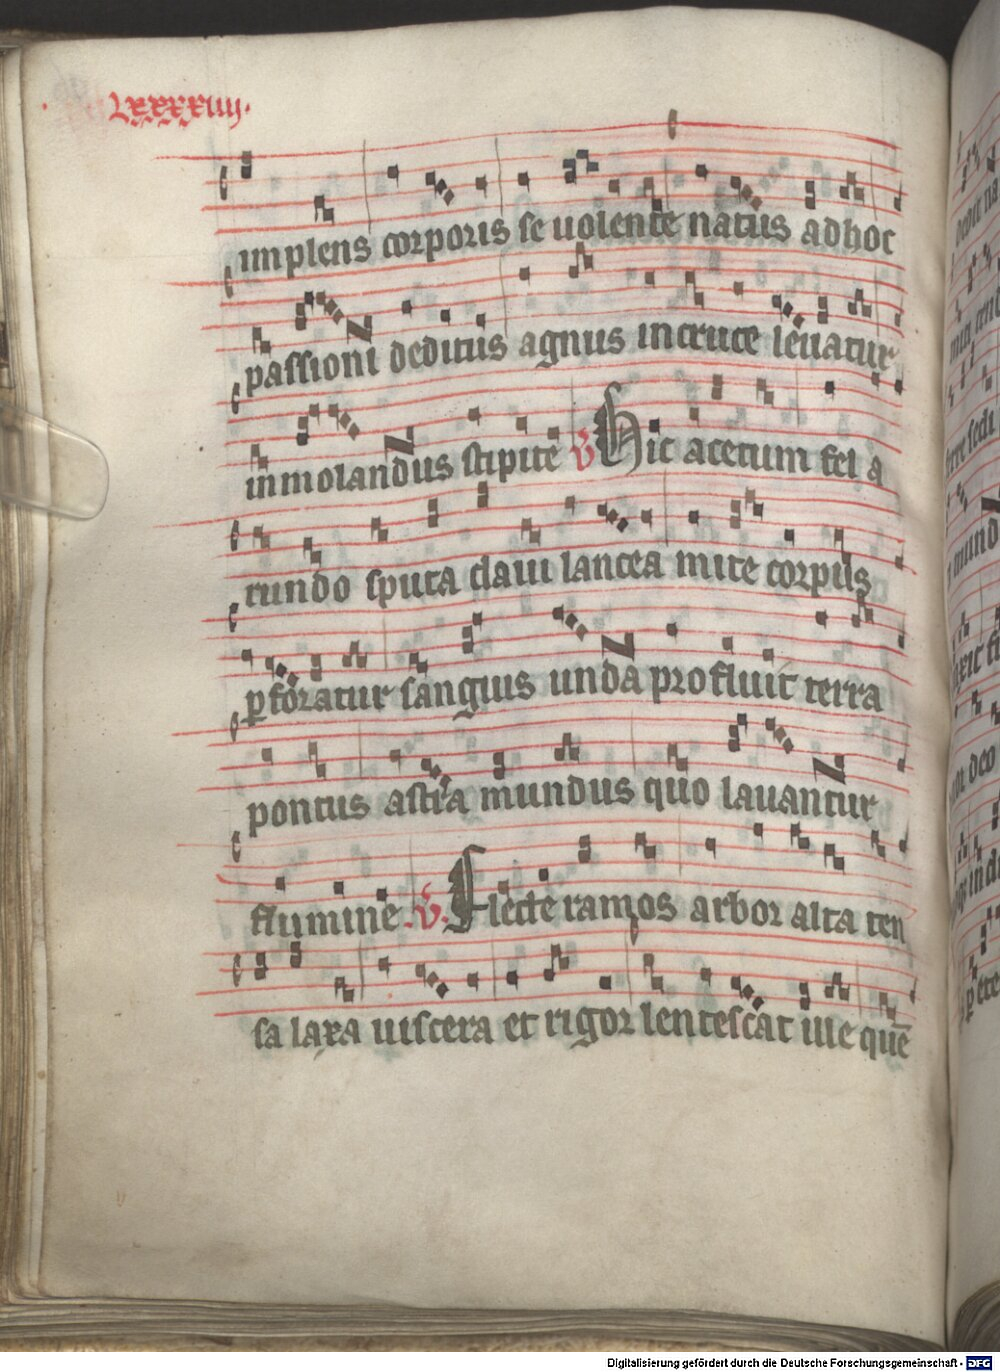 .lxxxxiiij.
implens corporis se uolente natus adhoc
passioni deditus agnus incruce leuatur
inmolandus stipite v̄ Hic acetum fel a
rundo sputa claui lancea mite corpus
ꝑforatur sanguis unda profluit terra
pontus astra mundus quo lauantur
flumine. v̄. Flecte ramos arbor alta ten
sa laxa uiscera et rigor lentescat ille quē
Digitalisierung gefördert durch die Deutsche Forschungsgemeinschaft - DFG